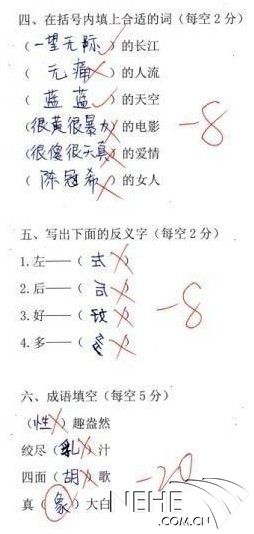 四、在括号内填上合适的词（每空2分）
（一望无际）的长江
（无痛）的人流
（蓝蓝）的天空
（很黄很暴力）的电影
（很傻很天真）的爱情
（陈冠希）的女人
-8
五、写出下面的反义字（每空2分）
1.左——（）
2.后——（）
3.好——（）
4.多——（）
-8
六、成语填空（每空5分）
（性）趣盎然
绞尽（乳）汁
四面（胡）歌
真（象）大白
-20
NEHE
.COM.CN